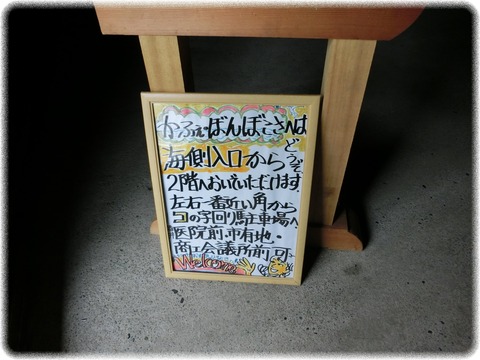 かふぇぼんぼこさんは
海側入口からどうぞ
2階へおいでいただけます.
左右一番近い角から
コの字回り駐車場へ
医院前・市有地・
商工会議所前可
Welcome